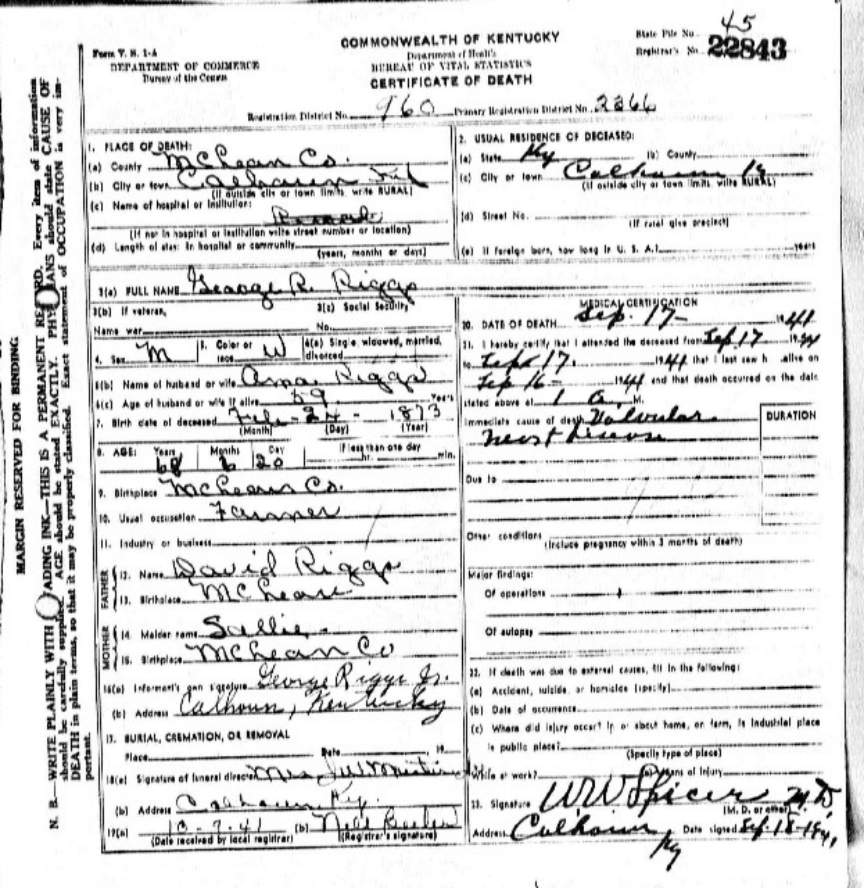 45
State File No.
Registrar's No. 22843
Form V. S. 1-A
DEPARTMENT OF COMMERCE
Bureau of the Census
COMMONWEALTH OF KENTUCKY
Department of Health
BUREAU OF VITAL STATISTICS
CERTIFICATE OF DEATH
Registration District No. 960 Primary Registration District No. 2366
MARGIN RESERVED FOR BINDING
N. B.—WRITE PLAINLY WITH ADING INK—THIS IS A PERMANENT RECORD. Every item of information
should be carefully supplied. AGE should be stated EXACTLY. PHY IANS should state CAUSE OF
DEATH in plain terms, so that it may be properly classified. Exact statement of OCCUPATION is very im-
portant.
1. PLACE OF DEATH:
(a) County McLean Co.
(b) City or town Calhoun
(If outside city or town limits, write RURAL)
(c) Name of hospital or institution:
(If not in hospital or institution write street number or location)
(d) Length of stay: In hospital or community
(years, months or days)
2. USUAL RESIDENCE OF DECEASED:
(a) State Ky (b) County
(c) City or town Calhoun
(If outside city or town limits write RURAL)
(d) Street No.
(If rural give precinct)
(e) If foreign born, how long in U. S. A.? years
3(a) FULL NAME George R. Riggs
3(b) If veteran, 3(c) Social Security
Name war No.
4. Sex M 5. Color or race W 6(a) Single, widowed, married, divorced
6(b) Name of husband or wife Riggs
6(c) Age of husband or wife if alive 59 Years
7. Birth date of deceased Feb - 24 - 1873
(Month) (Day) (Year)
8. AGE: Years Months Day If less than one day
68 6 20 hr. min.
9. Birthplace McLean Co.
10. Usual occupation Farmer
11. Industry or business
FATHER
12. Name David Riggs
13. Birthplace McLean
MOTHER
14. Maiden name Sallie
15. Birthplace McLean Co
16(a) Informant's own signature George Riggs Jr.
(b) Address Calhoun, Kentucky
17. BURIAL, CREMATION, OR REMOVAL
Place Date 19
18(a) Signature of funeral director Mrs
(b) Address Calhoun Ky.
19(a) 10-7-41 (b)
(Date received by local registrar) (Registrar's signature)
MEDICAL CERTIFICATION
20. DATE OF DEATH Sep. 17- 1941
21. I hereby certify that I attended the deceased from Sep 17 1941
to Sept 17. 1941 that I last saw h alive on
Sep 16- 1941 and that death occurred on the date
stated above at 1 a. M.
Immediate cause of death Valvular
heart disease
DURATION
Due to
Other conditions
(Include pregnancy within 3 months of death)
Major findings:
Of operations
Of autopsy
22. If death was due to external causes, fill in the following:
(a) Accident, suicide, or homicide (specify)
(b) Date of occurrence
(c) Where did injury occur? In or about home, on farm, in industrial place
in public place?
(Specify type of place)
While at work? (e) Means of injury
23. Signature WW Spicer M.D.
(M. D. or other)
Address Calhoun Ky Date signed Sep. 18-1941